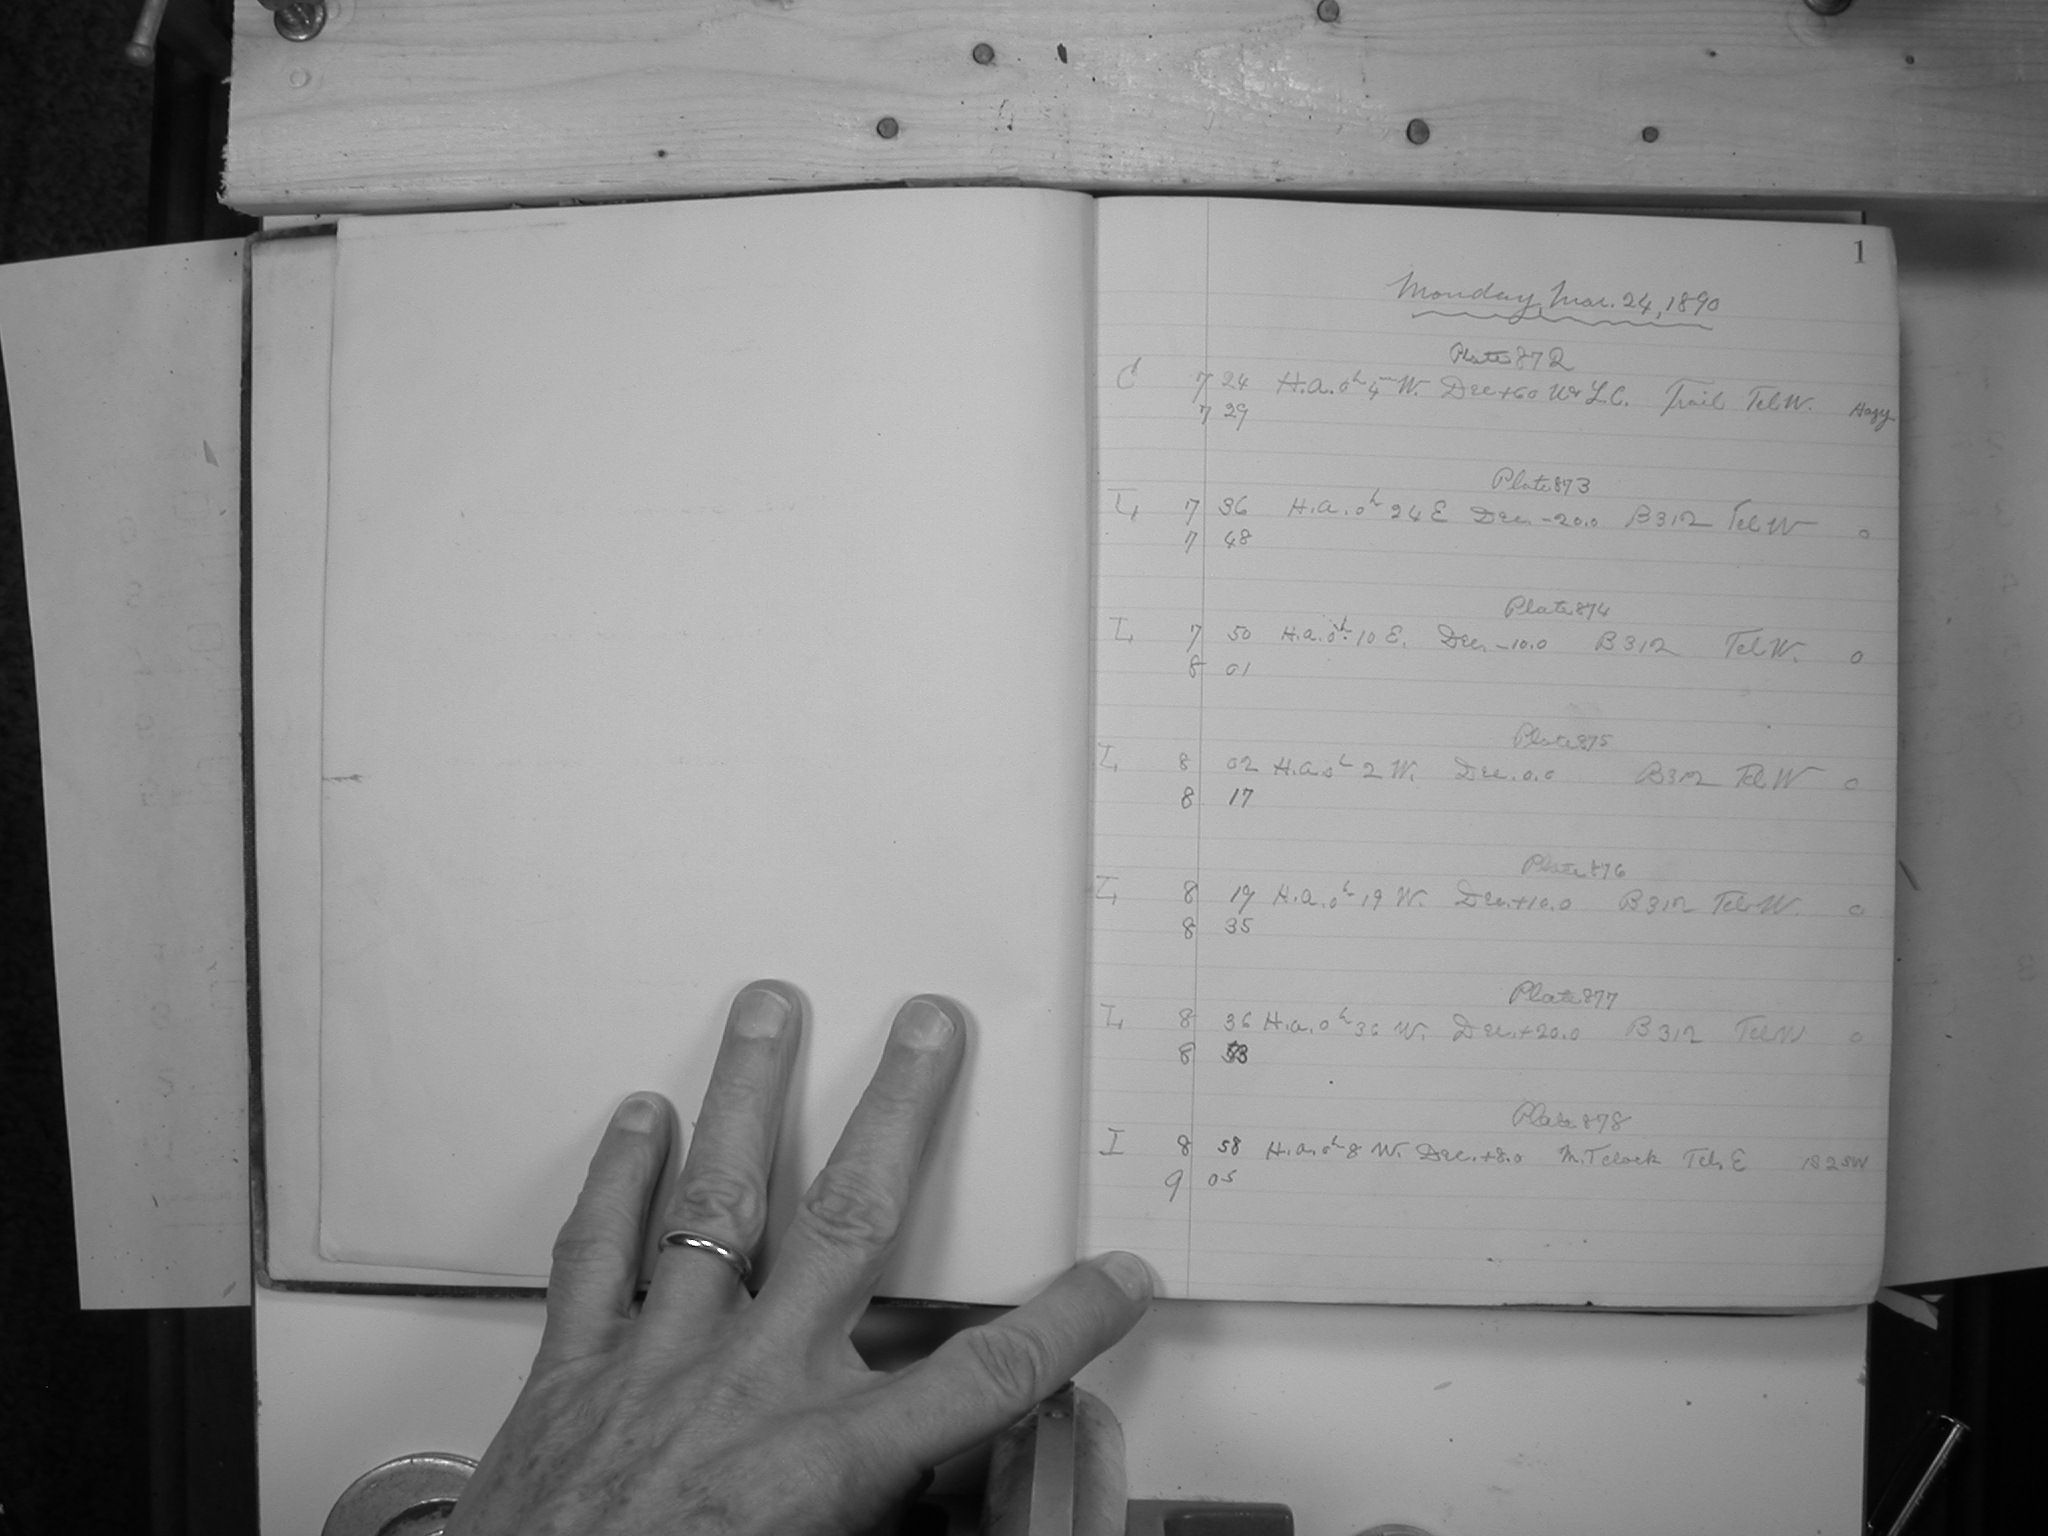 1
Monday, Mar. 24, 1890
Plate 872
C 7 24 H.A. 0h 4m W. Dec +60 U & L.C. Trail Tel W. Hazy
7 29
Plate 873
I, 7 36 H.A. 0h 24 E Dec. -20.0 B 312 Tel W 0
7 48
Plate 874
I, 7 50 H.A. 0h 10 E. Dec. -10.0 B 312 Tel W. 0
8 01
Plate 875
I, 8 02 H.A. 0h 2 W. Dec. 0.0 B 312 Tel W 0
8 17
Plate 876
I, 8 19 H.A. 0h 19 W. Dec. +10.0 B 312 Tel W. 0
8 35
Plate 877
I, 8 36 H.A. 0h 36 W. Dec. +20.0 B 312 Tel W 0
8 53
Plate 878
I 8 58 H.A. 0h 8 W. Dec. +8.0 M.T Clock Tel. E
9 05